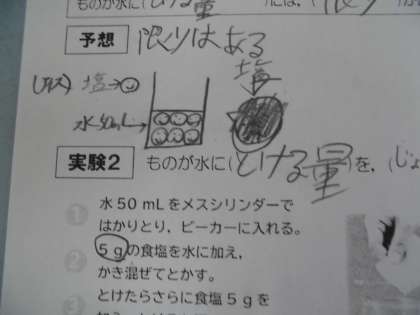 ものが水に(とける量)には、(限り)が
予想 限りはある
塩
塩→
水50mL→
実験2 ものが水に(とける量)を,(じょ
1 水50mLをメスシリンダーで
はかりとり、ビーカーに入れる。
2 5gの食塩を水に加え,
かき混ぜてとかす。
3 とけたらさらに食塩5gを